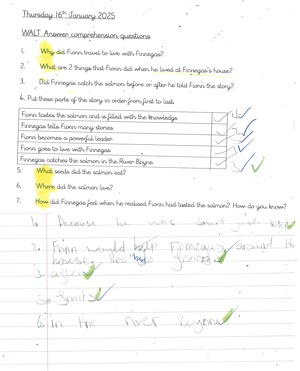 Thursday 16th January 2025
WALT Answer comprehension questions
1. Why did Fionn travel to live with Finnegas?
2. What are 2 things that Fionn did when he lived at Finnegas's house?
3. Did Finnegas catch the salmon before or after he told Fionn the story?
4. Put these parts of the story in order from first to last.
Fionn tastes the salmon and is filled with the knowledge
Finnegas tells Fionn many stories
Fionn becomes a powerful leader
Fionn goes to live with Finnegas
Finnegas catches the salmon in the River Boyne
5. What seeds did the salmon eat?
6. Where did the salmon live?
7. How did Finnegas feel when he realised Fionn had tasted the salmon? How do you know?
1. Because he was
2. Fionn would help Finnegas around the
house.
3. after
5. fruits
6. In the river